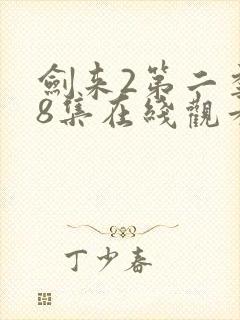 劍来2第二季
8集在綫觀看
丁少春